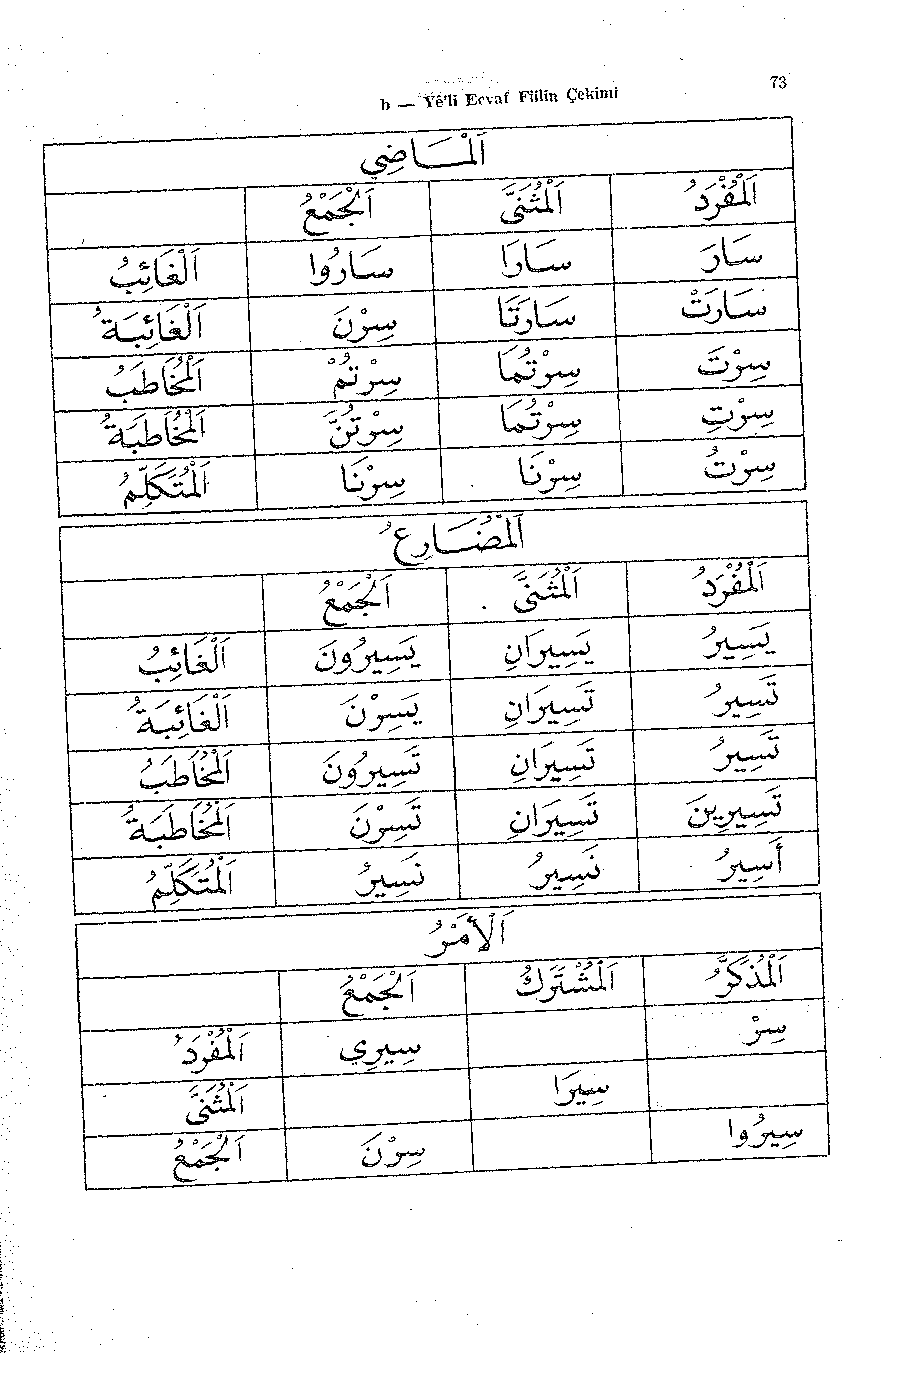 73
b — Yê'li Ecvaf Fiilin Çekimi
اَلْمَـاضِي
اَلْمُفْرَدُ اَلْمُثَنَّى اَلْجَمْعُ
سَارَ سَارَا سَارُوا اَلْغَائِبُ
سَارَتْ سَارَتَا سِرْنَ اَلْغَائِبَةُ
سِرْتَ سِرْتُمَا سِرْتُمْ اَلْمُخَاطَبُ
سِرْتِ سِرْتُمَا سِرْتُنَّ اَلْمُخَاطَبَةُ
سِرْتُ سِرْنَا سِرْنَا اَلْمُتَكَلِّمُ
اَلْمُضَـارِعُ
اَلْمُفْرَدُ اَلْمُثَنَّى اَلْجَمْعُ
يَسِيرُ يَسِيرَانِ يَسِيرُونَ اَلْغَائِبُ
تَسِيرُ تَسِيرَانِ يَسِرْنَ اَلْغَائِبَةُ
تَسِيرُ تَسِيرَانِ تَسِيرُونَ اَلْمُخَاطَبُ
تَسِيرِينَ تَسِيرَانِ تَسِرْنَ اَلْمُخَاطَبَةُ
أَسِيرُ نَسِيرُ نَسِيرُ اَلْمُتَكَلِّمُ
اَلْأَمْرُ
اَلْمُذَكَّرُ اَلْمُشْتَرَكُ اَلْجَمْعُ
سِرْ سِيرِي اَلْمُفْرَدُ
سِيرَا اَلْمُثَنَّى
سِيرُوا سِرْنَ اَلْجَمْعُ